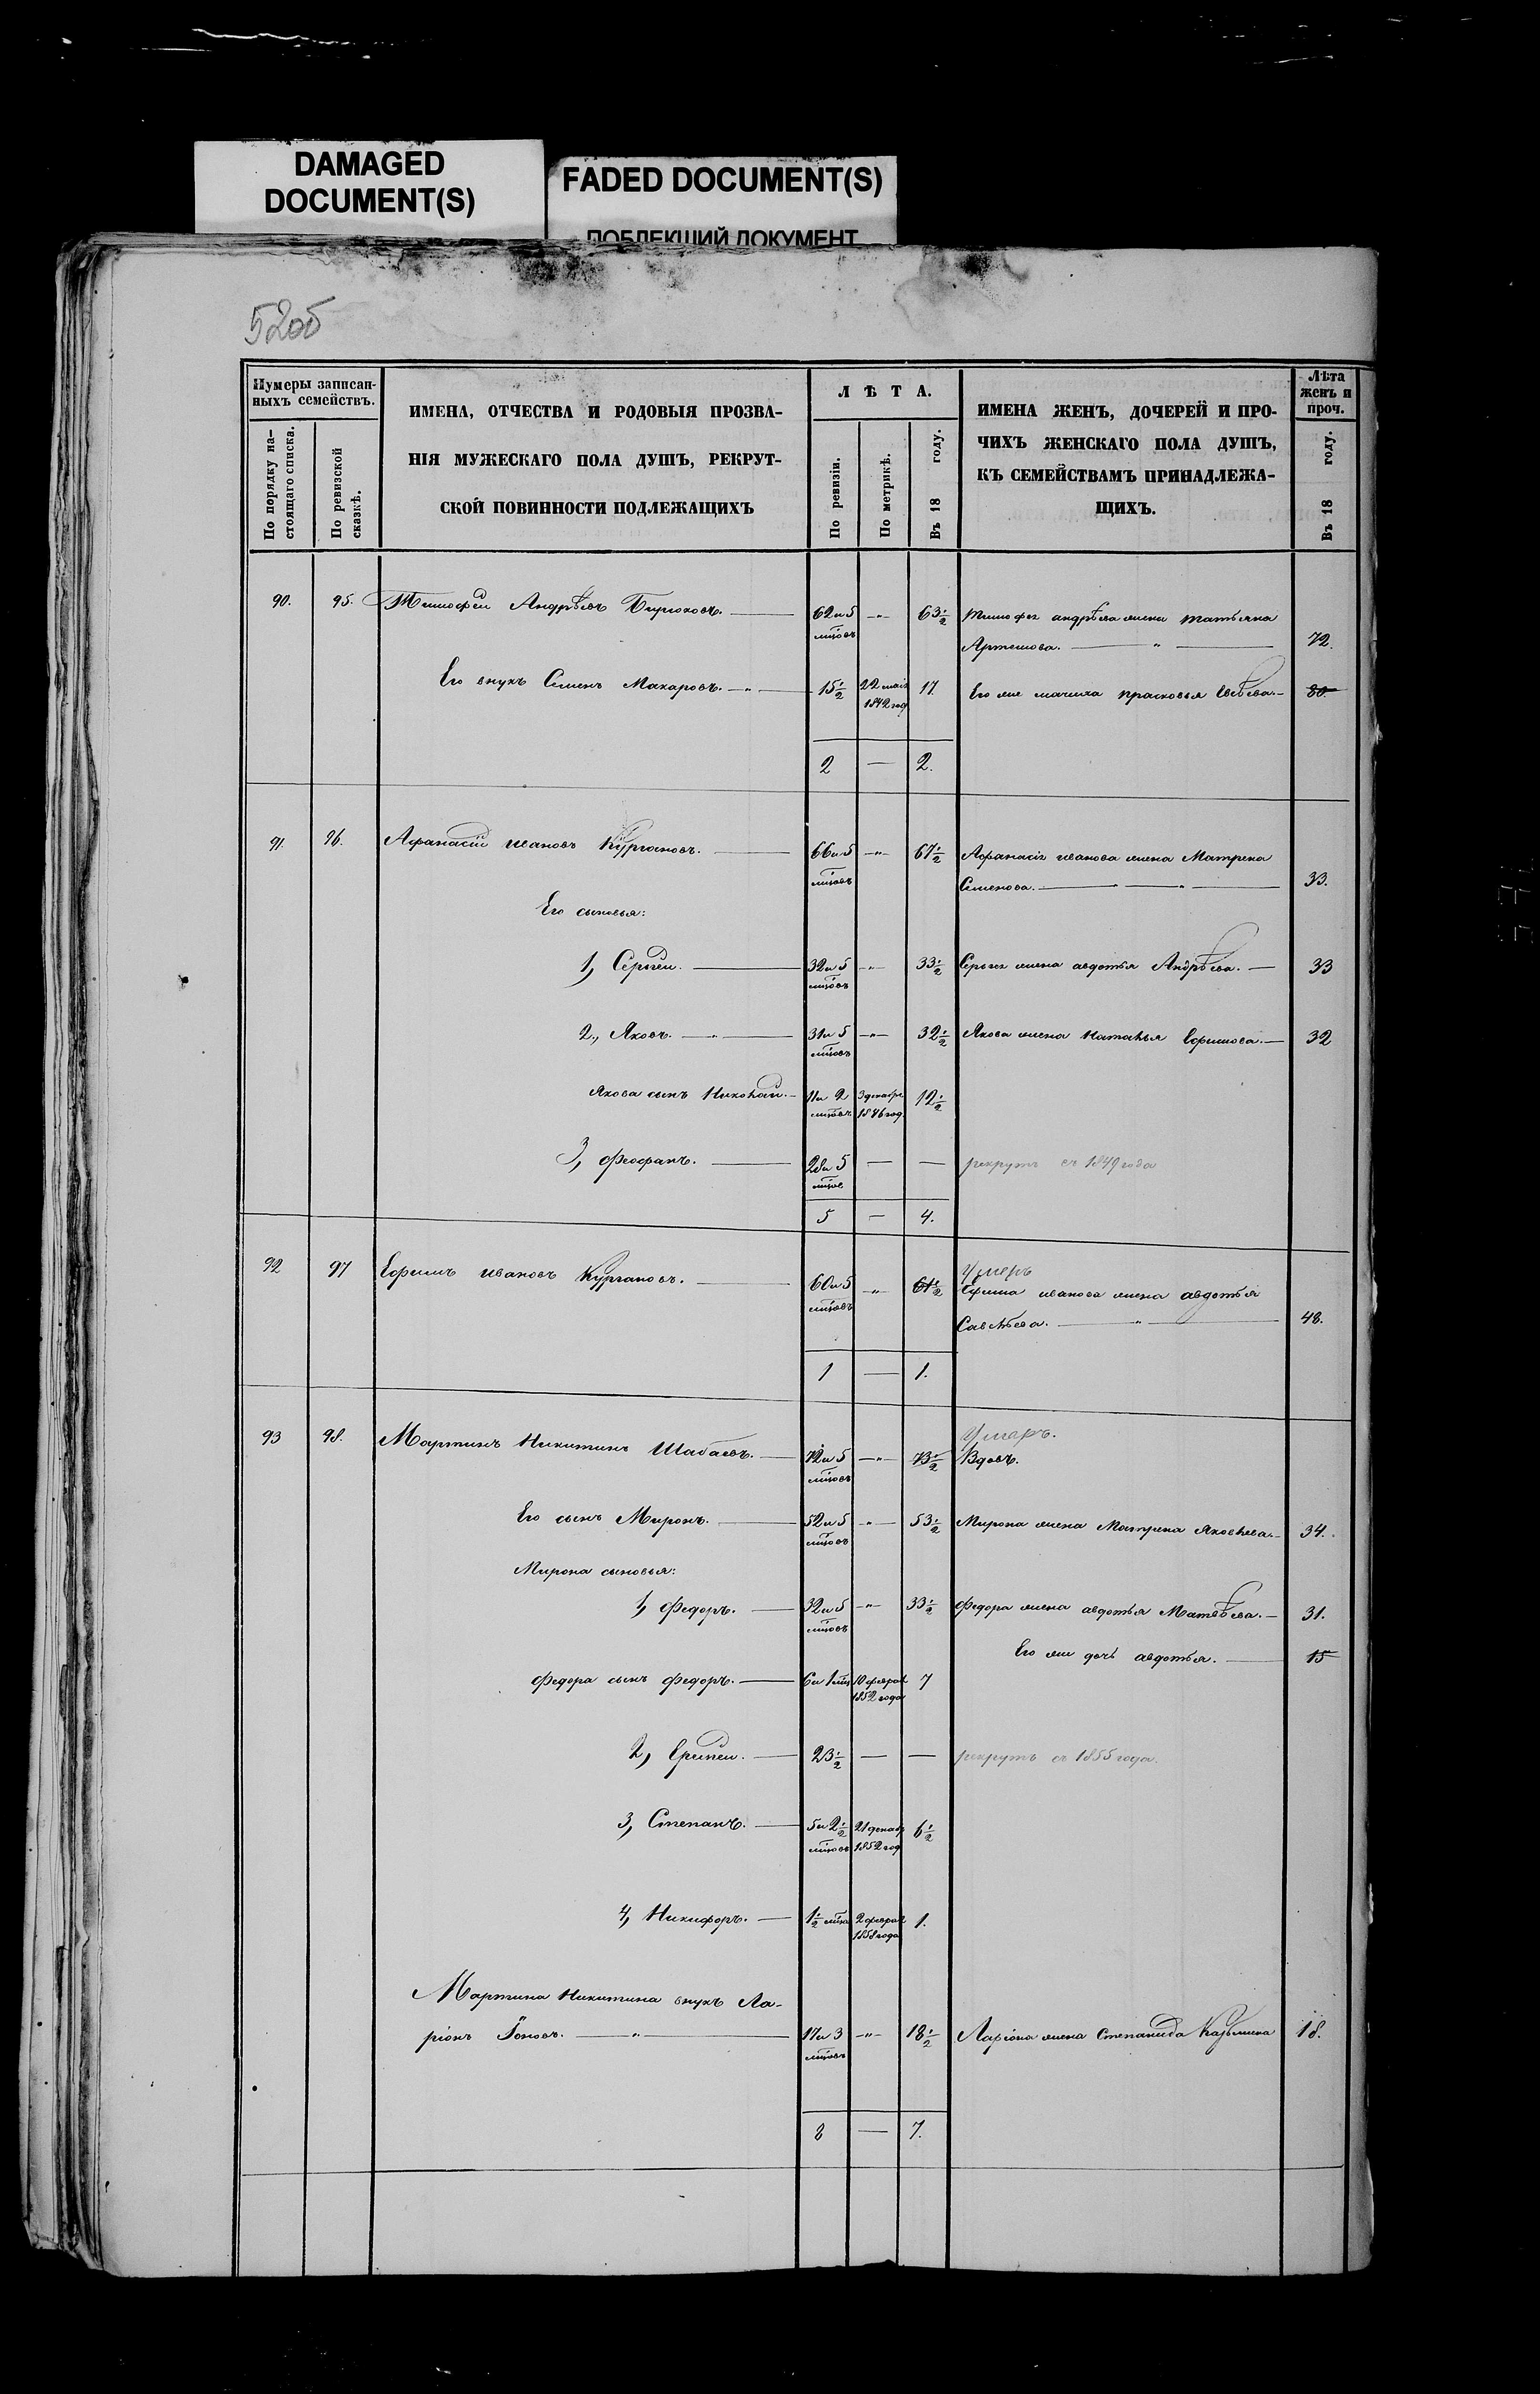 DAMAGED
DOCUMENT(S)
FADED DOCUMENT(S)
ПОБЛЕКШИЙ ДОКУМЕНТ
52об
Нумеры записан-
ныхъ семействъ.
По порядку на-
стоящаго списка.
По ревизской
сказкѣ.
ИМЕНА, ОТЧЕСТВА И РОДОВЫЯ ПРОЗВА-
НІЯ МУЖЕСКАГО ПОЛА ДУШЪ, РЕКРУТ-
СКОЙ ПОВИННОСТИ ПОДЛЕЖАЩИХЪ
ЛѢТА.
По ревизіи.
По метрикѣ.
Въ 18 году.
ИМЕНА ЖЕНЪ, ДОЧЕРЕЙ И ПРО-
ЧИХЪ ЖЕНСКАГО ПОЛА ДУШЪ,
КЪ СЕМЕЙСТВАМЪ ПРИНАДЛЕЖА-
ЩИХЪ.
Лѣта
женъ и
проч.
Въ 18 году.
90. 95. Тимофей Андрѣевъ Бирюковъ. 62 и 5 мцовъ — 63 1/2 Тимофея андрѣева жена татьяна
Артемова. 72.
Его внукъ Семенъ Макаровъ. 15 1/2 22 маія 1842 год 17. Его же мачиха прасковья 30.
2 — 2.
91. 96. Афанасій ивановъ Кургановъ. 66 и 5 мцовъ — 67 1/2 Афанасія иванова жена Матрена
Семенова. 33.
Его сыновья:
1, Сергѣй. 32 и 5 мцовъ — 33 1/2 Сергея жена авдотья Андрѣева. 33
2, Яковъ. 31 и 5 мцовъ — 32 1/2 Якова жена наталья Ефимова. 32
Якова сынъ Николай. 11 и 2 мцовъ 3 декабр 1846 год. 12 1/2
3, Феофанъ. 28 и 5 мцов — — рекрутъ съ 1849 года
5 — 4.
92 97 Ефимъ ивановъ Кургановъ. 60 и 5 мцовъ — 61 1/2 Умеръ
Ефима иванова жена авдотья
Савельева. 48.
1 — 1.
93 98. Мартинъ Никитинъ Шабаевъ. 72 и 5 мцовъ — 73 1/2 Умеръ.
Вдовъ.
Его сынъ Миронъ. 52 и 5 мцовъ — 53 1/2 Мирона жена Матрена Яковлева. 34.
Мирона сыновья:
1, Федоръ. 32 и 5 мцовъ — 33 1/2 Федора жена авдотья Матвѣева. 31.
Его же дочь авдотья. 15
Федора сынъ Федоръ. 6 и 1 мц 10 феврал 1852 года 7
2, 23 1/2 — — рекрутъ съ 1855 года.
3, Степанъ. 5 и 2 1/2 мцовъ 21 декаб 1852 год 6 1/2
4, Никифоръ. 1 1/2 мца 2 феврал 1858 года 1.
Мартина Никитина внукъ Ла-
ріонъ Іоновъ. 17 и 3 мцовъ — 18 1/2 Ларіона жена Степанида Казьмина 18.
8 — 7.